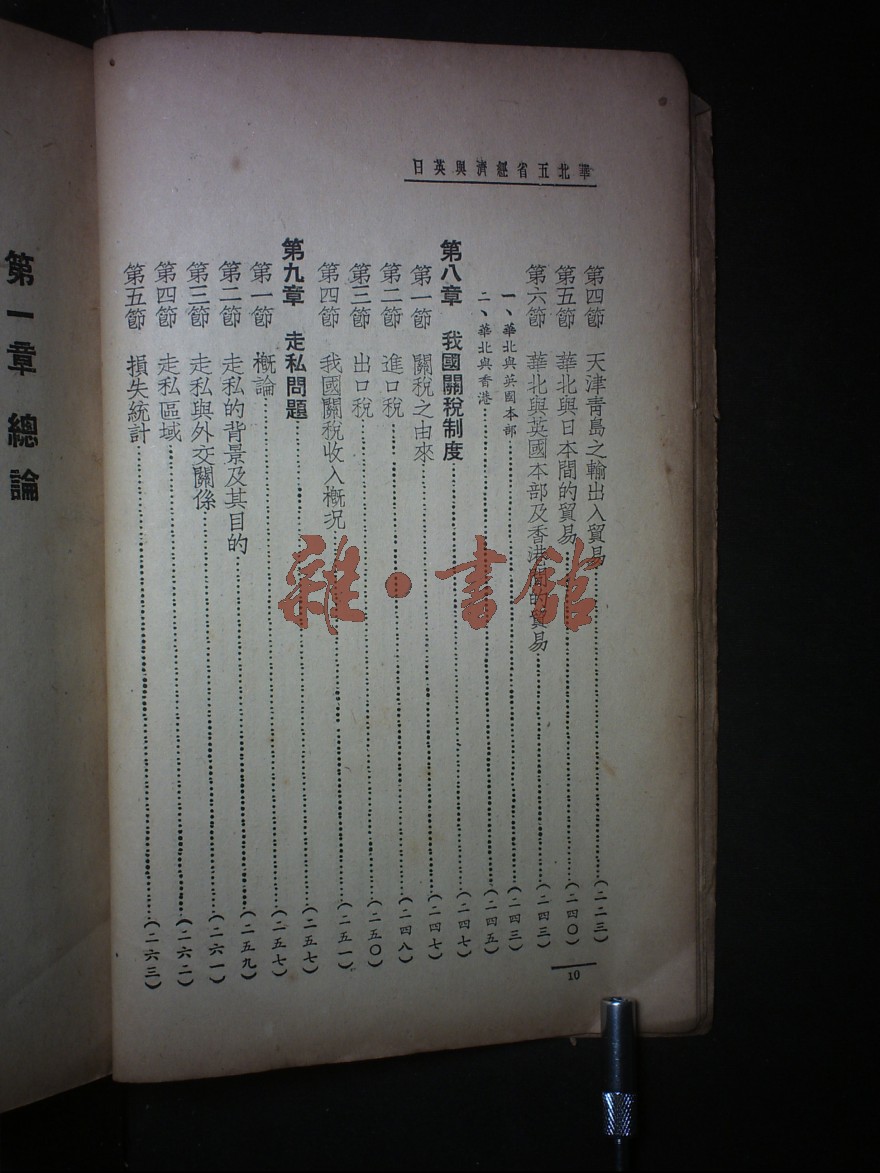 華北五省經濟與英日
第四節 天津靑島之輸出入貿易……(二二三)
第五節 華北與日本間的貿易……(二四〇)
第六節 華北與英國本部及香港間的貿易……(二四三)
一、華北與英國本部……(二四三)
二、華北與香港……(二四五)
第八章 我國關稅制度……(二四七)
第一節 關稅之由來……(二四七)
第二節 進口稅……(二四八)
第三節 出口稅……(二五〇)
第四節 我國關稅收入槪況……(二五一)
第九章 走私問題……(二五七)
第一節 槪論……(二五七)
第二節 走私的背景及其目的……(二五九)
第三節 走私與外交關係……(二六一)
第四節 走私區域……(二六二)
第五節 損失統計……(二六三)
10
第一章 總論
雜·書館